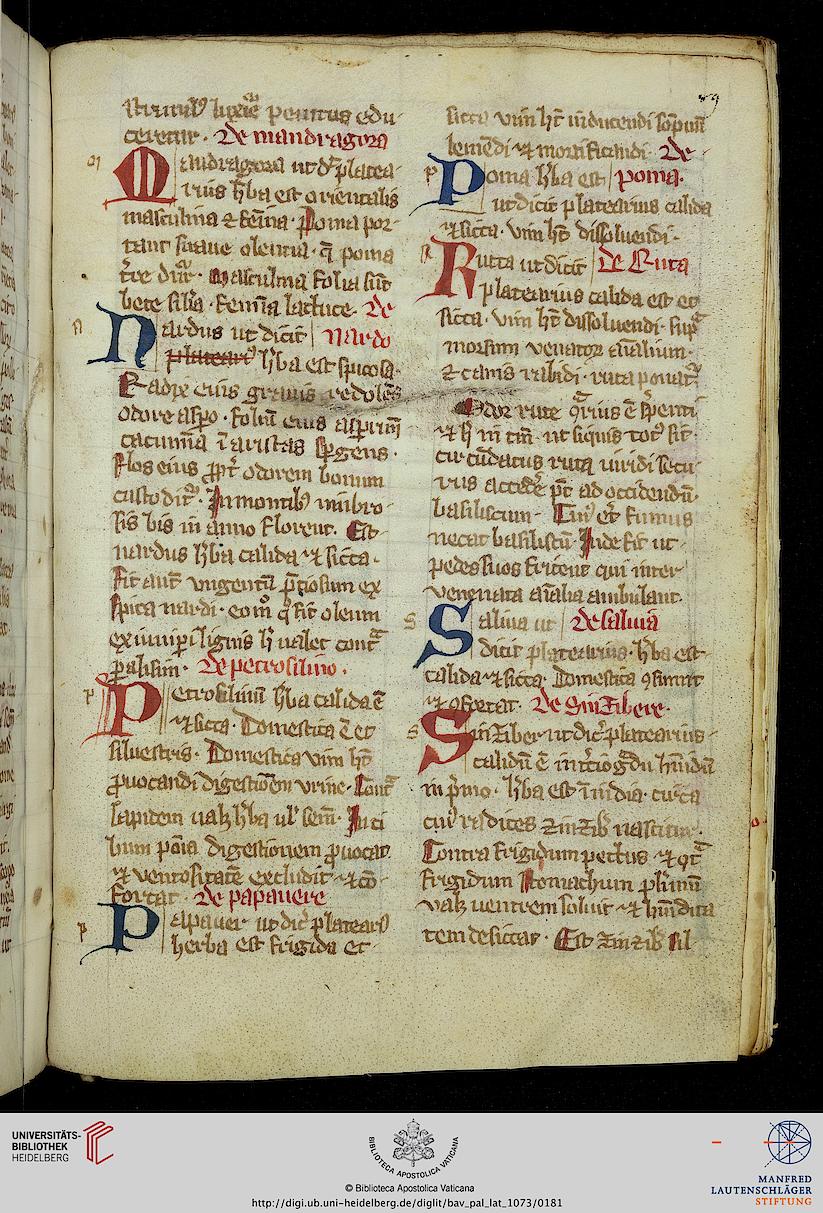 ceretur. De mandragora
Mandragora ut dr̄ platea-
rius hba est orientalis
masculina ⁊ fēina. Poma por-
tant suave olentia. q̄ poma
tr̄e dn̄r. Masculina folia sūt
bete silia. Femīa lactuce. De
Nardus ut dicit nardo
hba est spicosa.
Radix eius gravis redolēs
odore aspo. foliū eius
cacumīa ī aristas spgens.
Flos eius odorem bonum
custodit. In montibꝰ
bis in anno florent. Est
nardus hba calida ⁊ sicca.
Fit aut̄ ungentū p̄tiosum ex
spica nardi. fit oleum
ex iuniperi lignis valet cont̄ᵃ
palisim. De petrosilino.
Petrosilinū hba calida ē
⁊ sicca. Domestica ē et
silvestris. Domestica vim ht̄
provocandi digestiōem urine. Contᵃ
lapidem hba ul' sem̄. In ci
bum poīta digestionem provocat
⁊ ventositatē excludit ⁊ cō-
fortat. De papavere
Papaver ut dic̄ plateariꝰ
herba est frigida et
sicca vim ht̄ inducendi sōpnū
leniēdi ⁊ mortificandi. De
Poma hba est poma.
ut dicit platearius calida
⁊ sicca. vim ht̄ dissolvendi.
Rutta ut dicit De Ruta
platearius calida est et
sicca. vim ht̄ dissolvendi. supᵃ
morsum venator aīalium.
⁊ canis rabidi. ruta ponat̄.
Odor rute ē spenti
⁊ ut siquis totꝰ sit
circūdatus ruta viridi secu-
rus accedē pt̄ ad occidendū
basiliscum. fumus
necat basiliscū. Inde fit ut
pedes suos fricent qui inter
venenata aīalia ambulant.
Salvia ut de salvia
dicit platearius. hba est
calida ⁊ sicca. Domestica
⁊ ꝯfortat. De Sinzibere.
Sinziber ut dic̄ platearius
calidū ē in tᵉcio gᵃdu hūidū
in pᵉmo. hba est ī india. circa
cuiꝰ radices zinzib̄ nascitur.
Contra frigidum pectus ⁊ ꝯtᵃ
frigidum stomachum plᵃimū
valz ventrem solvit ⁊ hūidita
tem desiccat. Est zinzib̄ sil
UNIVERSITÄTS-
BIBLIOTHEK
HEIDELBERG
BIBLIOTECA APOSTOLICA VATICANA
© Biblioteca Apostolica Vaticana
http://digi.ub.uni-heidelberg.de/diglit/bav_pal_lat_1073/0181
MANFRED
LAUTENSCHLÄGER
STIFTUNG